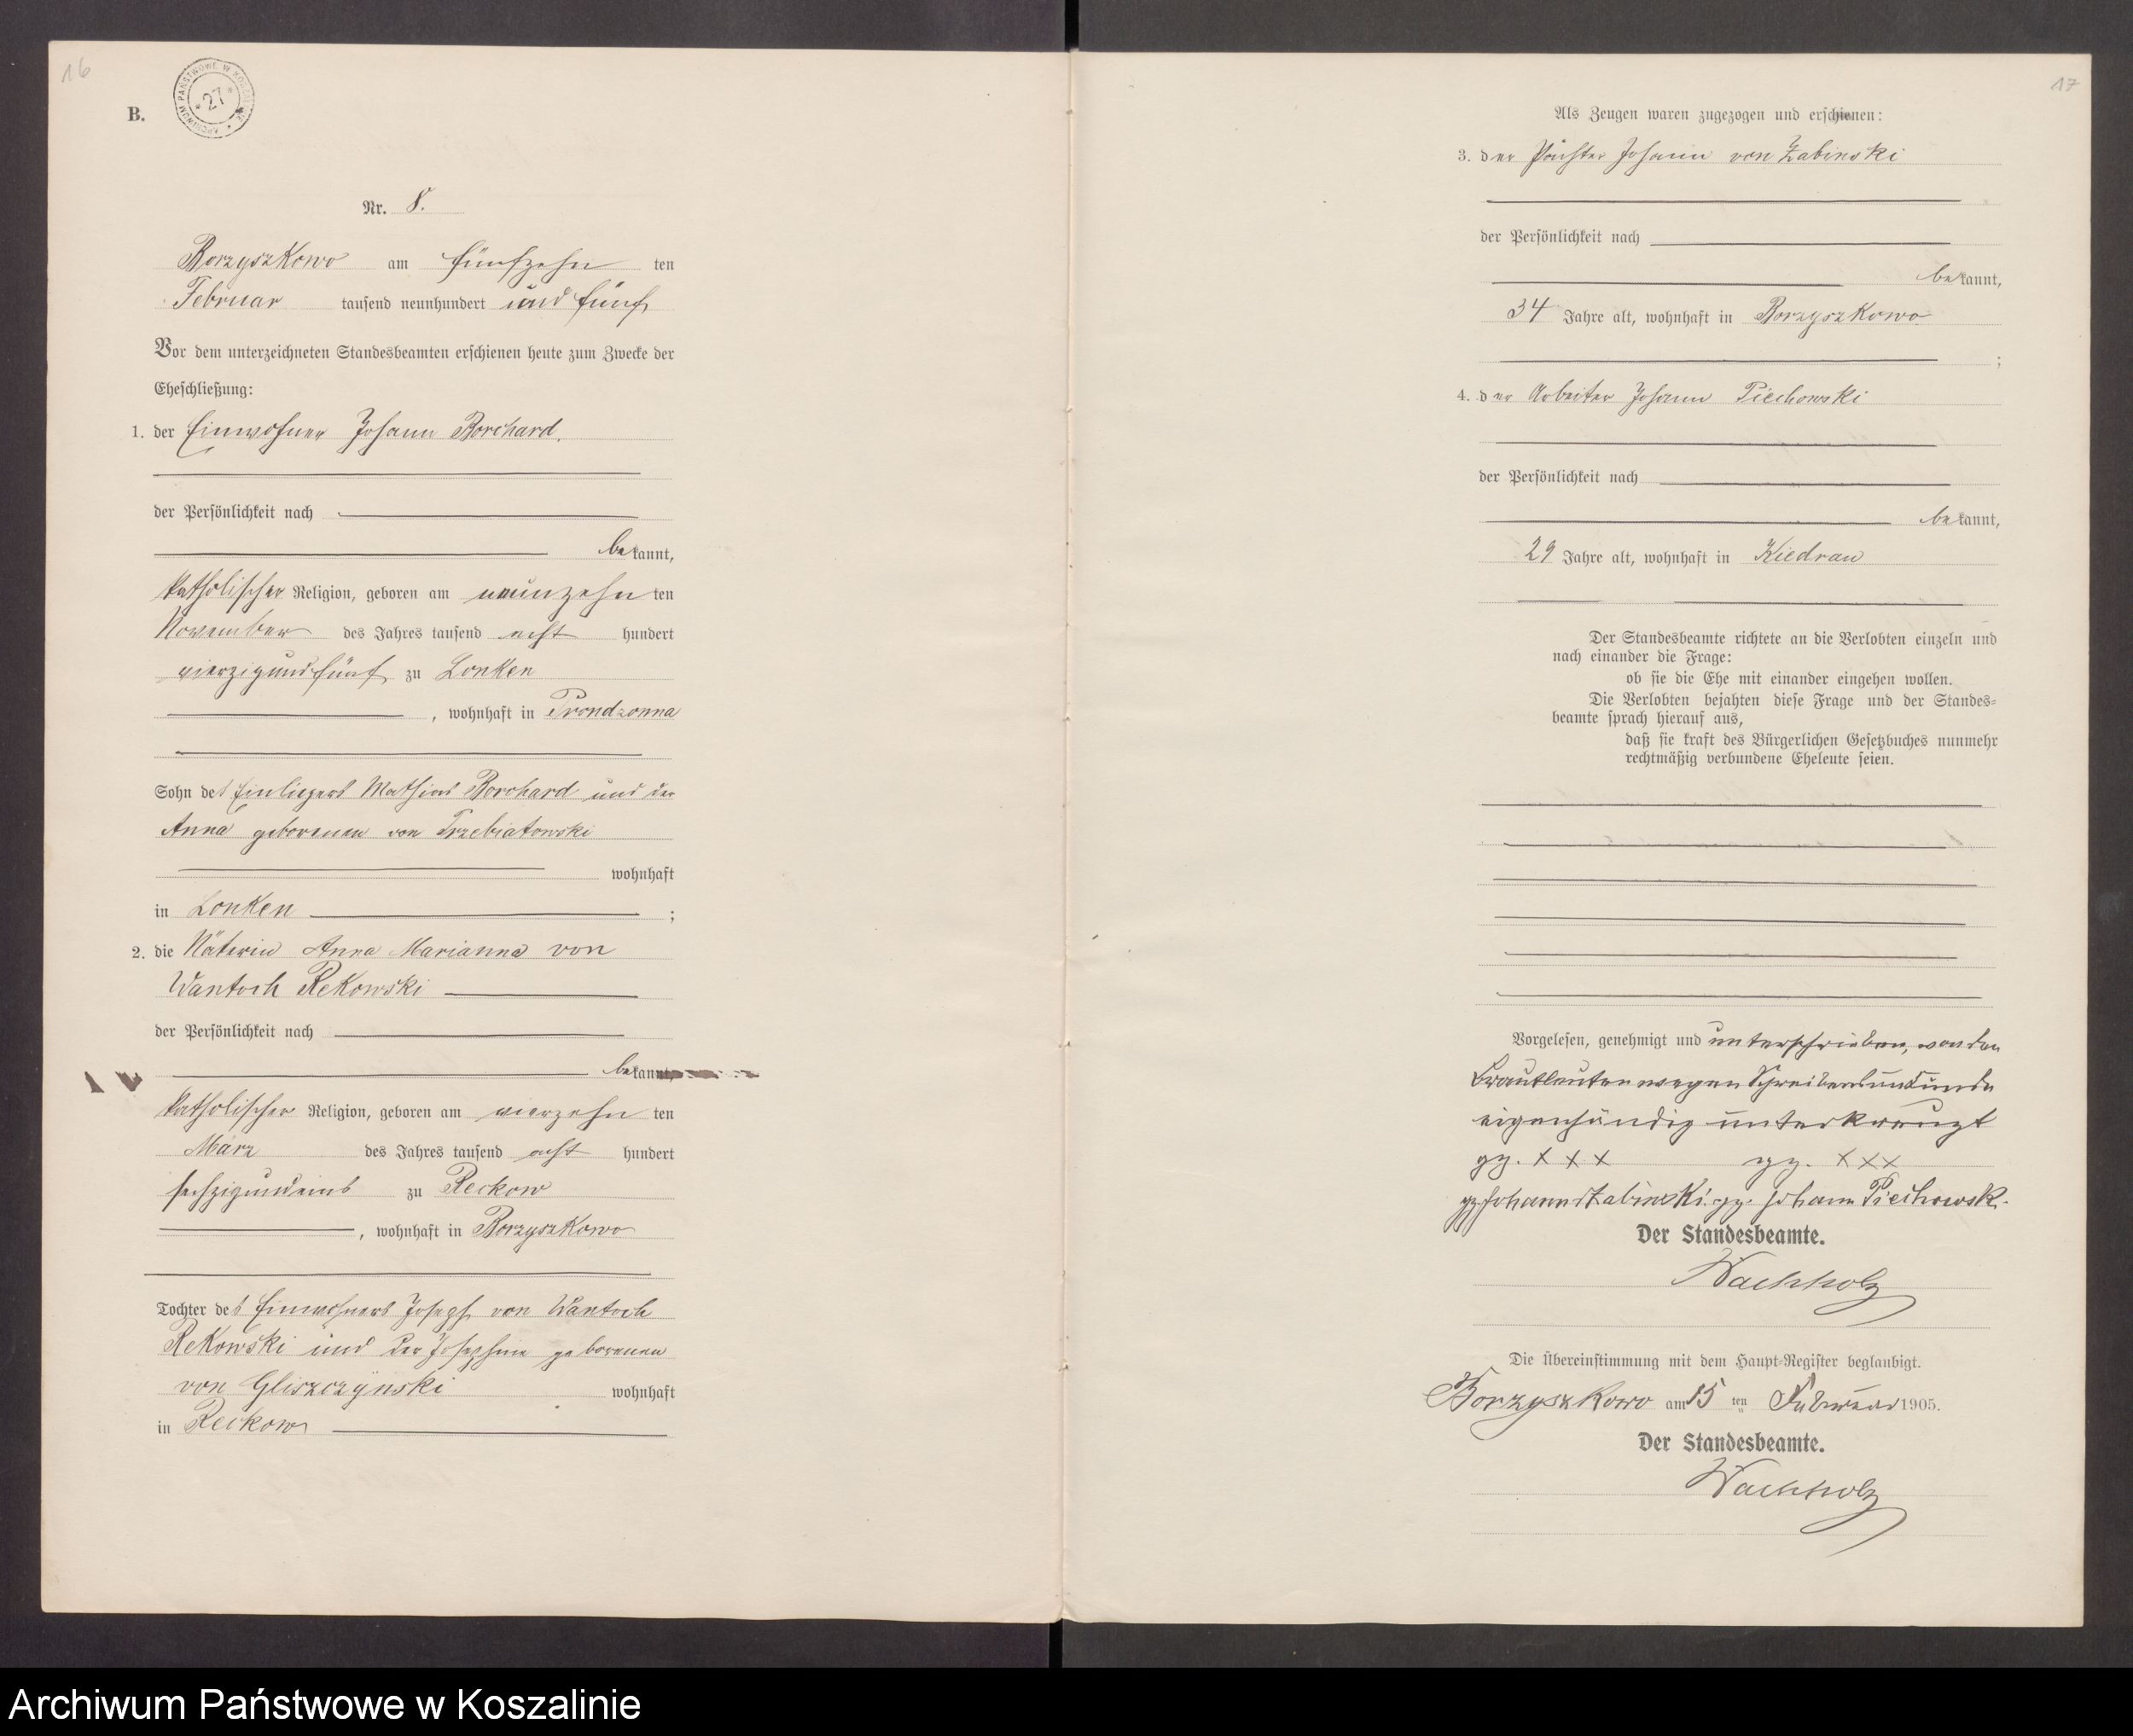 16
ARCHIWUM PAŃSTWOWE W KOSZALINIE
* 27 *
B.
Nr. 8.
Borzyszkowo am fünfzehn ten
Februar tausend neunhundert und fünf
Vor dem unterzeichneten Standesbeamten erschienen heute zum Zwecke der
Eheschließung:
1. der Einwohner Johann Borchard,
der Persönlichkeit nach
bekannt,
katholischer Religion, geboren am neunzehn ten
November des Jahres tausend acht hundert
vierzigundfünf zu Lonken
, wohnhaft in Prondzonna
Sohn des Einliegers Mathias Borchard und der
Anna geborenen von Trzebiatowski
wohnhaft
in Lonken ;
2. die Näterin Anna Marianna von
Wantoch Rekowski
der Persönlichkeit nach
bekannt,
katholischer Religion, geboren am vierzehn ten
März des Jahres tausend acht hundert
sechzigundeins zu Reckow
, wohnhaft in Borzyszkowo
Tochter des Einwohners Joseph von Wantoch
Rekowski und der Josephine geborenen
von Gliszczynski wohnhaft
in Reckow
17
Als Zeugen waren zugezogen und erschienen:
3. der Pächter Johann von Zabinski
der Persönlichkeit nach
bekannt,
34 Jahre alt, wohnhaft in Borzyszkowo
;
4. der Arbeiter Johann Piechowski
der Persönlichkeit nach
bekannt,
29 Jahre alt, wohnhaft in Kiedrau
Der Standesbeamte richtete an die Verlobten einzeln und
nach einander die Frage:
ob sie die Ehe mit einander eingehen wollen.
Die Verlobten bejahten diese Frage und der Standes-
beamte sprach hierauf aus,
daß sie kraft des Bürgerlichen Gesetzbuches nunmehr
rechtmäßig verbundene Eheleute seien.
Vorgelesen, genehmigt und unterschrieben, von den
Brautleuten wegen Schreibensunkunde
eigenhändig unterkreuzt
gz. X X X gz. X X X
gz. Johann Zabinski. gz. Johann Piechowski.
Der Standesbeamte.
Wachholz
Die Übereinstimmung mit dem Haupt-Register beglaubigt.
Borzyszkowo am 15 ten Februar 1905.
Der Standesbeamte.
Wachholz
Archiwum Państwowe w Koszalinie